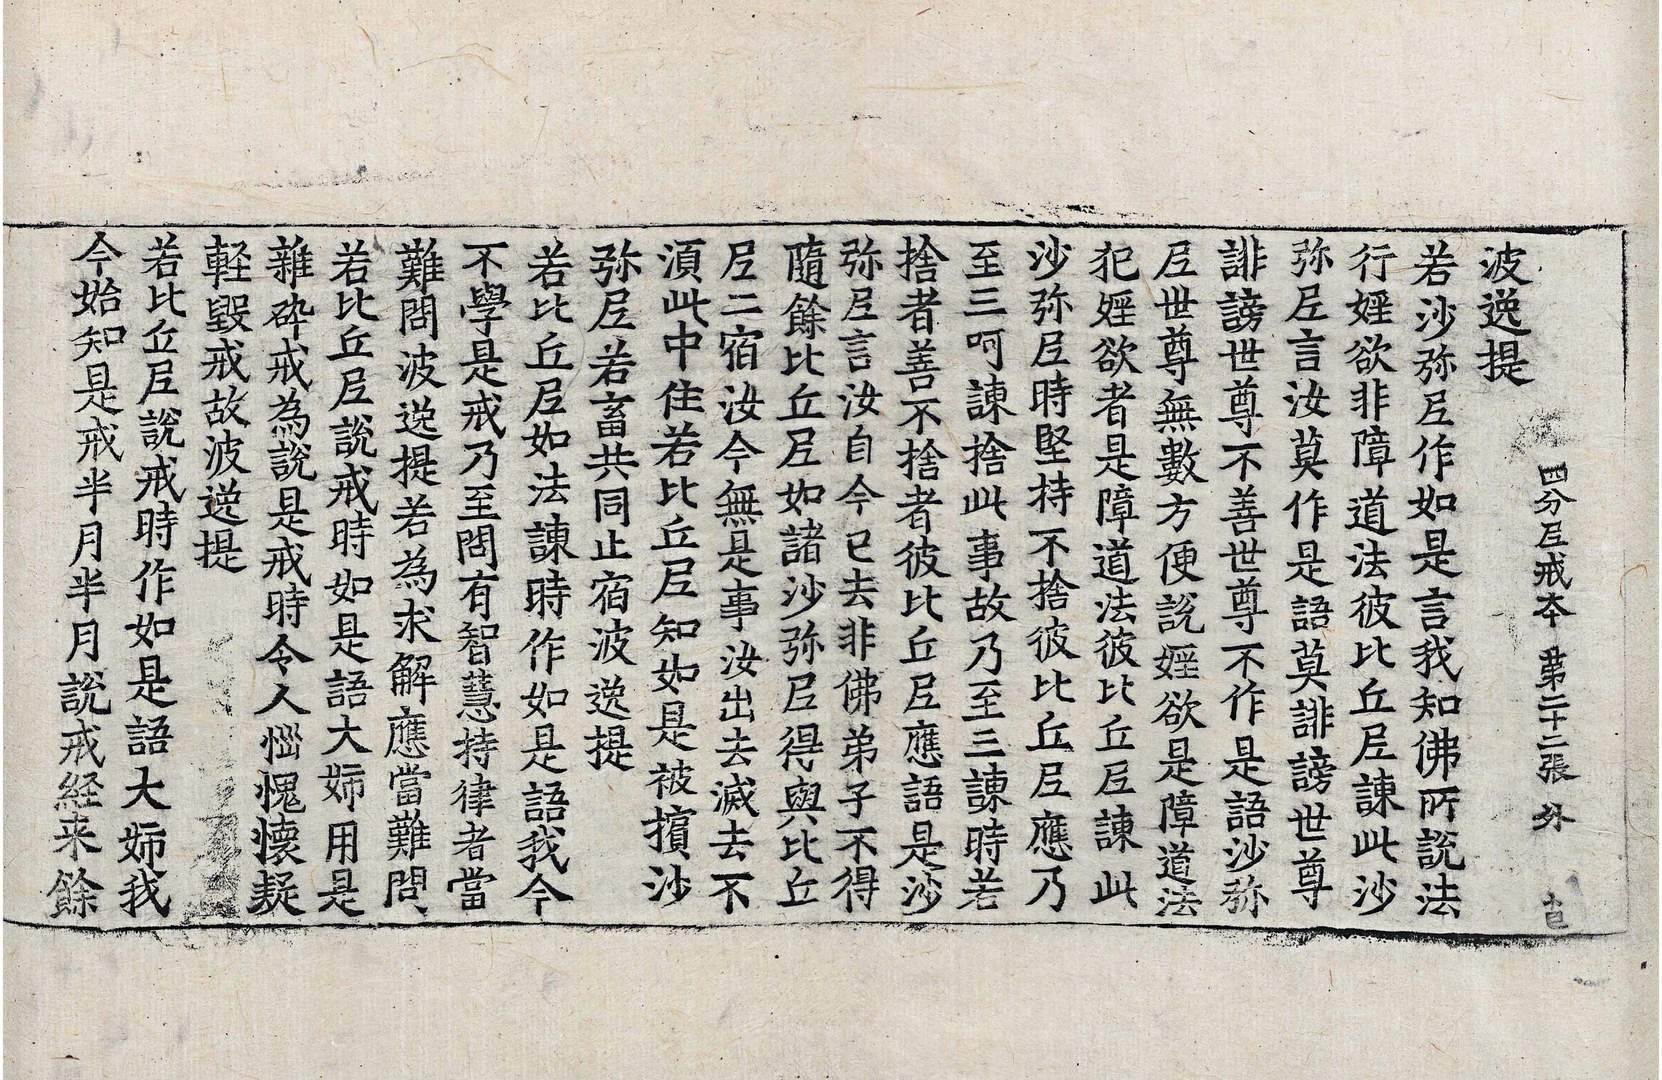 波逸提
四分尼戒本　第二十二張　外
若沙弥尼作如是言我知佛所說法
行婬欲非障道法彼比丘尼諫此沙
弥尼言汝莫作是語莫誹謗世尊
誹謗世尊不善世尊不作是語沙弥
尼世尊無數方便說婬欲是障道法
犯婬欲者是障道法彼比丘尼諫此
沙弥尼時堅持不捨彼比丘尼應乃
至三呵諫捨此事故乃至三諫時若
捨者善不捨者彼比丘尼應語是沙
弥尼言汝自今已去非佛弟子不得
隨餘比丘尼如諸沙弥尼得與比丘
尼二宿汝今無是事汝出去滅去不
湏此中住若比丘尼知如是被擯沙
弥尼若畜共同止宿波逸提
若比丘尼如法諫時作如是語我今
不學是戒乃至問有智慧持律者當
難問波逸提若為求解應當難問
若比丘尼說戒時如是語大姉用是
雜碎戒為說是戒時令人惱愧懷疑
軽毀戒故波逸提
若比丘尼說戒時作如是語大姉我
今始知是戒半月半月說戒経来餘